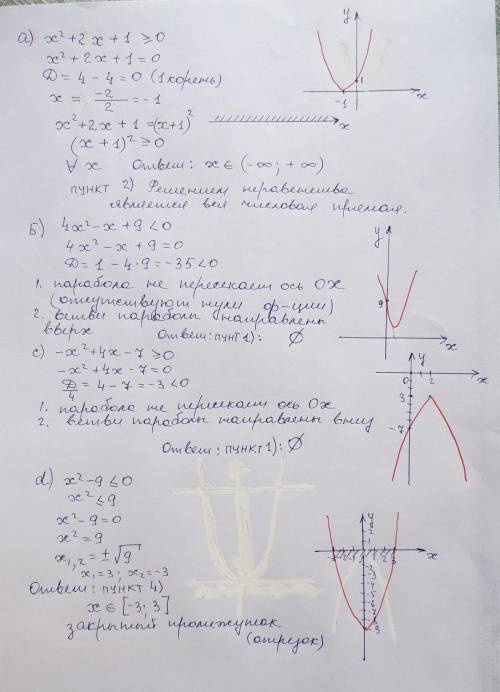 а) x² + 2x + 1 ≥ 0
x² + 2x + 1 = 0
D = 4 - 4 = 0 (1 корень)
x = -2/2 = -1
x² + 2x + 1 = (x+1)²
(x + 1)² ≥ 0
∀ x Ответ: x ∈ (-∞; +∞)
пункт 2) Решением неравенства
является вся числовая прямая.
y
1
-1
x
x
Б) 4x² - x + 9 < 0
4x² - x + 9 = 0
D = 1 - 4·9 = -35 < 0
1. парабола не пересекает ось Ox
(отсутствуют нули ф-ции)
2. ветви параболы направлены
вверх Ответ: пункт 1): ∅
y
9
x
c) -x² + 4x - 7 ≥ 0
-x² + 4x - 7 = 0
D/4 = 4 - 7 = -3 < 0
1. парабола не пересекает ось Ox
2. ветви параболы направлены вниз
Ответ: пункт 1): ∅
y
0 2
3
-7
d) x² - 9 ≤ 0
x² ≤ 9
x² - 9 = 0
x² = 9
x₁,₂ = ±√9
x₁ = 3; x₂ = -3
Ответ: пункт 4)
x ∈ [-3; 3]
закрытый промежуток
(отрезок)
y
-3
3
x